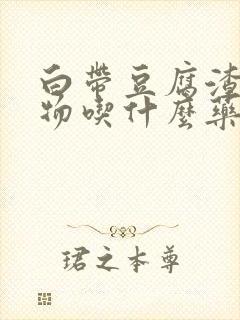 白带豆腐渣
物喫什麽藥
珺之本尊